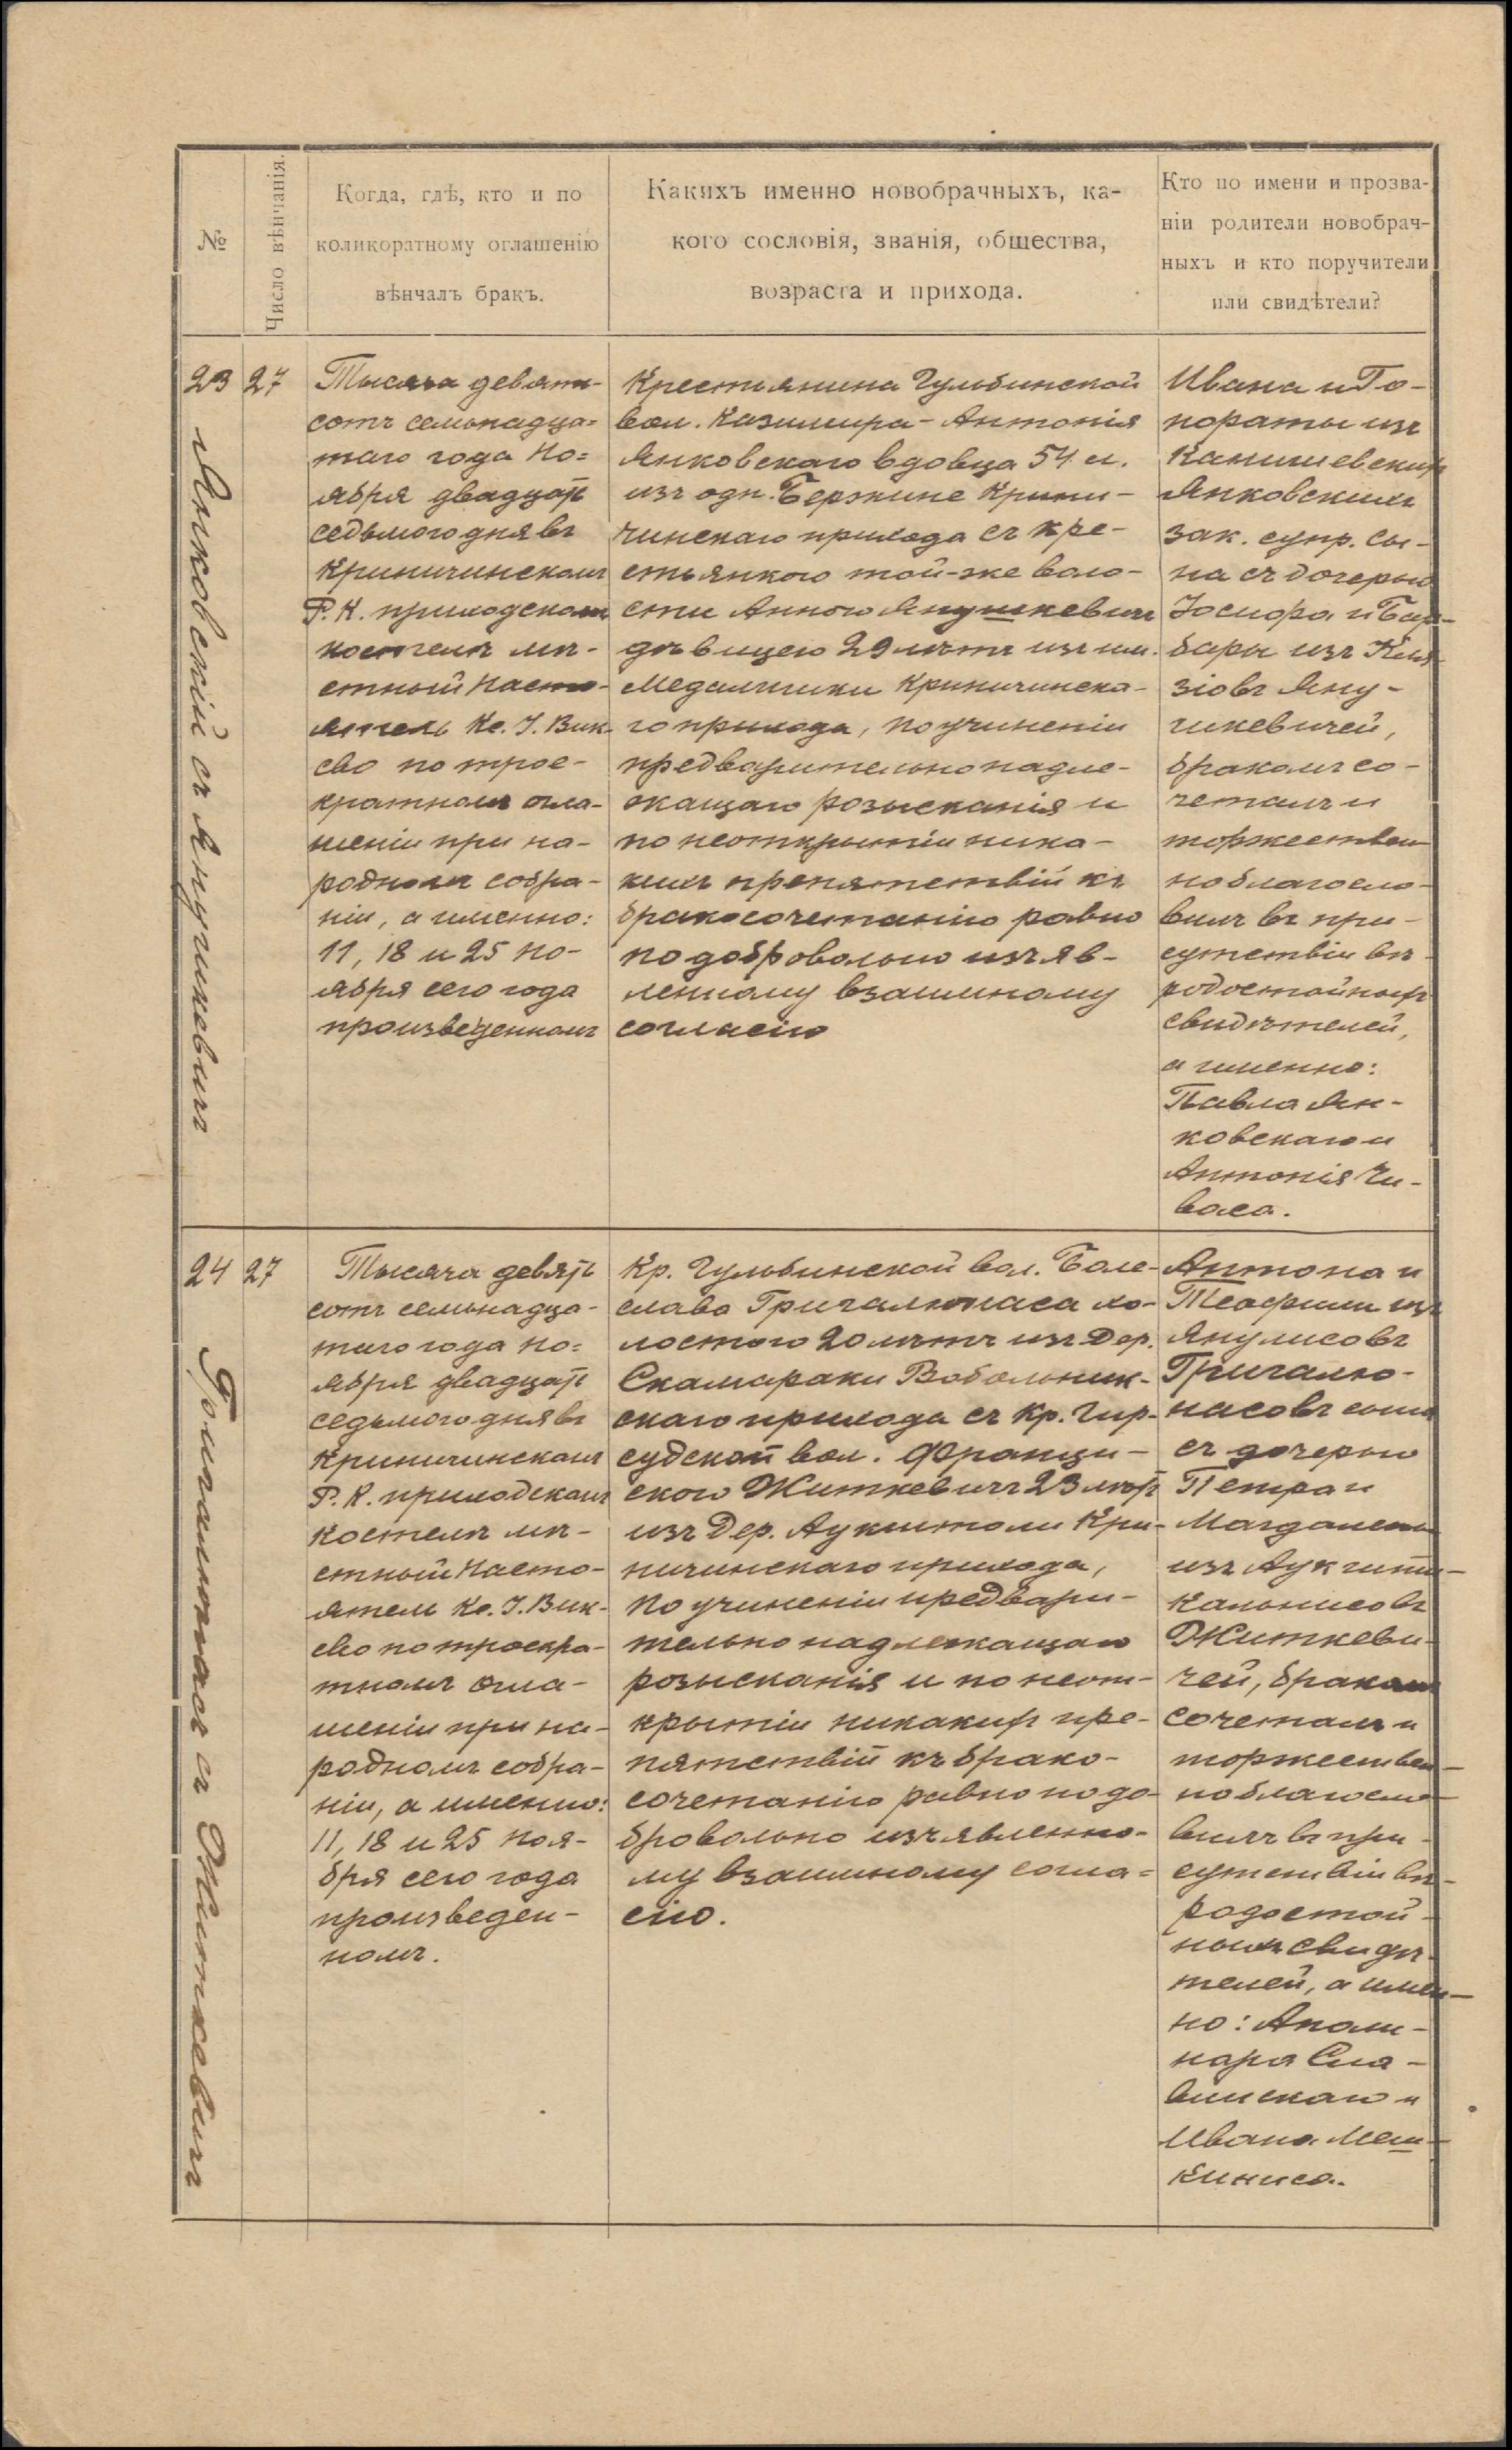 №
Число вѣнчанія.
Когда, гдѣ, кто и по
коликоратному оглашенію
вѣнчалъ бракъ.
Какихъ именно новобрачныхъ, ка-
кого сословія, званія, общества,
возраста и прихода.
Кто по имени и прозва-
ніи родители новобрач-
ныхъ и кто поручители
или свидѣтели?
23
27
Янковскій съ Янушкевичъ
Тысяча девять-
сотъ семьнадца=
таго года Но=
ября двадцать
седьмого дня въ
Криничинскомъ
Р. К. приходскомъ
костелѣ мѣ-
стный Насто-
ятель Кс. І. Вик-
сво по трое-
кратномъ огла-
шеніи при на-
родномъ собра-
ніи, а именно:
11, 18 и 25 Но-
ября сего года
произведенномъ
Крестьянина Гульбинской
вол. Казимира-Антонія
Янковскаго вдовца 54 л.
изъ одн. Бержине Крини-
чинскаго прихода съ кре-
стьянкою той-же воло-
сти Анною Янушкевичъ
дѣвицею 29 лѣтъ изъ им.
Медалишки Криничинска-
го прихода, по учиненіи
предварительно надле-
жащаго розысканія и
по неоткрытіи ника-
кихъ препятствій къ
бракосочетанію равно
по добровольно изъяв-
ленному взаимному
согласію
Ивана и Го-
нораты изъ
Канишевскихъ
Янковскихъ
зак. супр. сы-
на съ дочерью
Іосифа и Бар-
бары изъ Кня-
зювъ Яну-
шкевичей,
бракомъ со-
четалъ и
торжествен-
но благосло-
вилъ въ при-
сутствіи вѣ-
родостойныхъ
свидѣтелей,
а именно:
Павла Ян-
ковскаго и
Антонія Чи-
васа.
24
27
Григалюнасъ съ Житкевичъ
Тысяча девять
сотъ семьнадца-
таго года Но=
ября двадцать
седьмого дня въ
Криничинскомъ
Р. К. приходскомъ
костелѣ мѣ-
стный Насто-
ятель Кс. І. Вик-
сво по троекра-
тномъ огла-
шеніи при на-
родномъ собра-
ніи, а именно:
11, 18 и 25 Ноя-
бря сего года
произведен-
номъ.
Кр. Гульбинской вол. Боле-
слава Григалюнаса хо-
лостого 20 лѣтъ изъ дер.
Скамараки Вобольник-
скаго прихода съ кр. Гир-
судской вол. Францис-
скою Житкевичъ 23 лѣтъ
изъ дер. Аукштоли Кри-
ничинскаго прихода,
по учиненіи предвари-
тельно надлежащаго
розысканія и по неот-
крытіи никакихъ пре-
пятствій къ брако-
сочетанію равно по до-
бровольно изъявленно-
му взаимному согла=
сію.
Антона и
Теофили изъ
Янулисовъ
Григалю-
насовъ сына
съ дочерью
Петра и
Магдалены
изъ Аукшти-
кальнисовъ
Житкеви-
чей, бракомъ
сочеталъ и
торжествен-
но благосло-
вилъ въ при-
сутствіи вѣ-
родостой-
ныхъ свидѣ-
телей, а имен-
но: Аполи-
нара Сла-
винскаго и
Ивана Меш-
киниса.